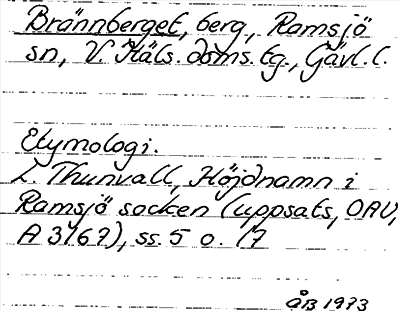 Brännberget, berg, Ramsjö
sn, V. Häls. doms. tg., Gävl. l.
Etymologi.
L. Thunvall, Höjdnamn i
Ramsjö socken (uppsats, OAU,
A 3167), ss. 5 o. 17
ÅB 1973